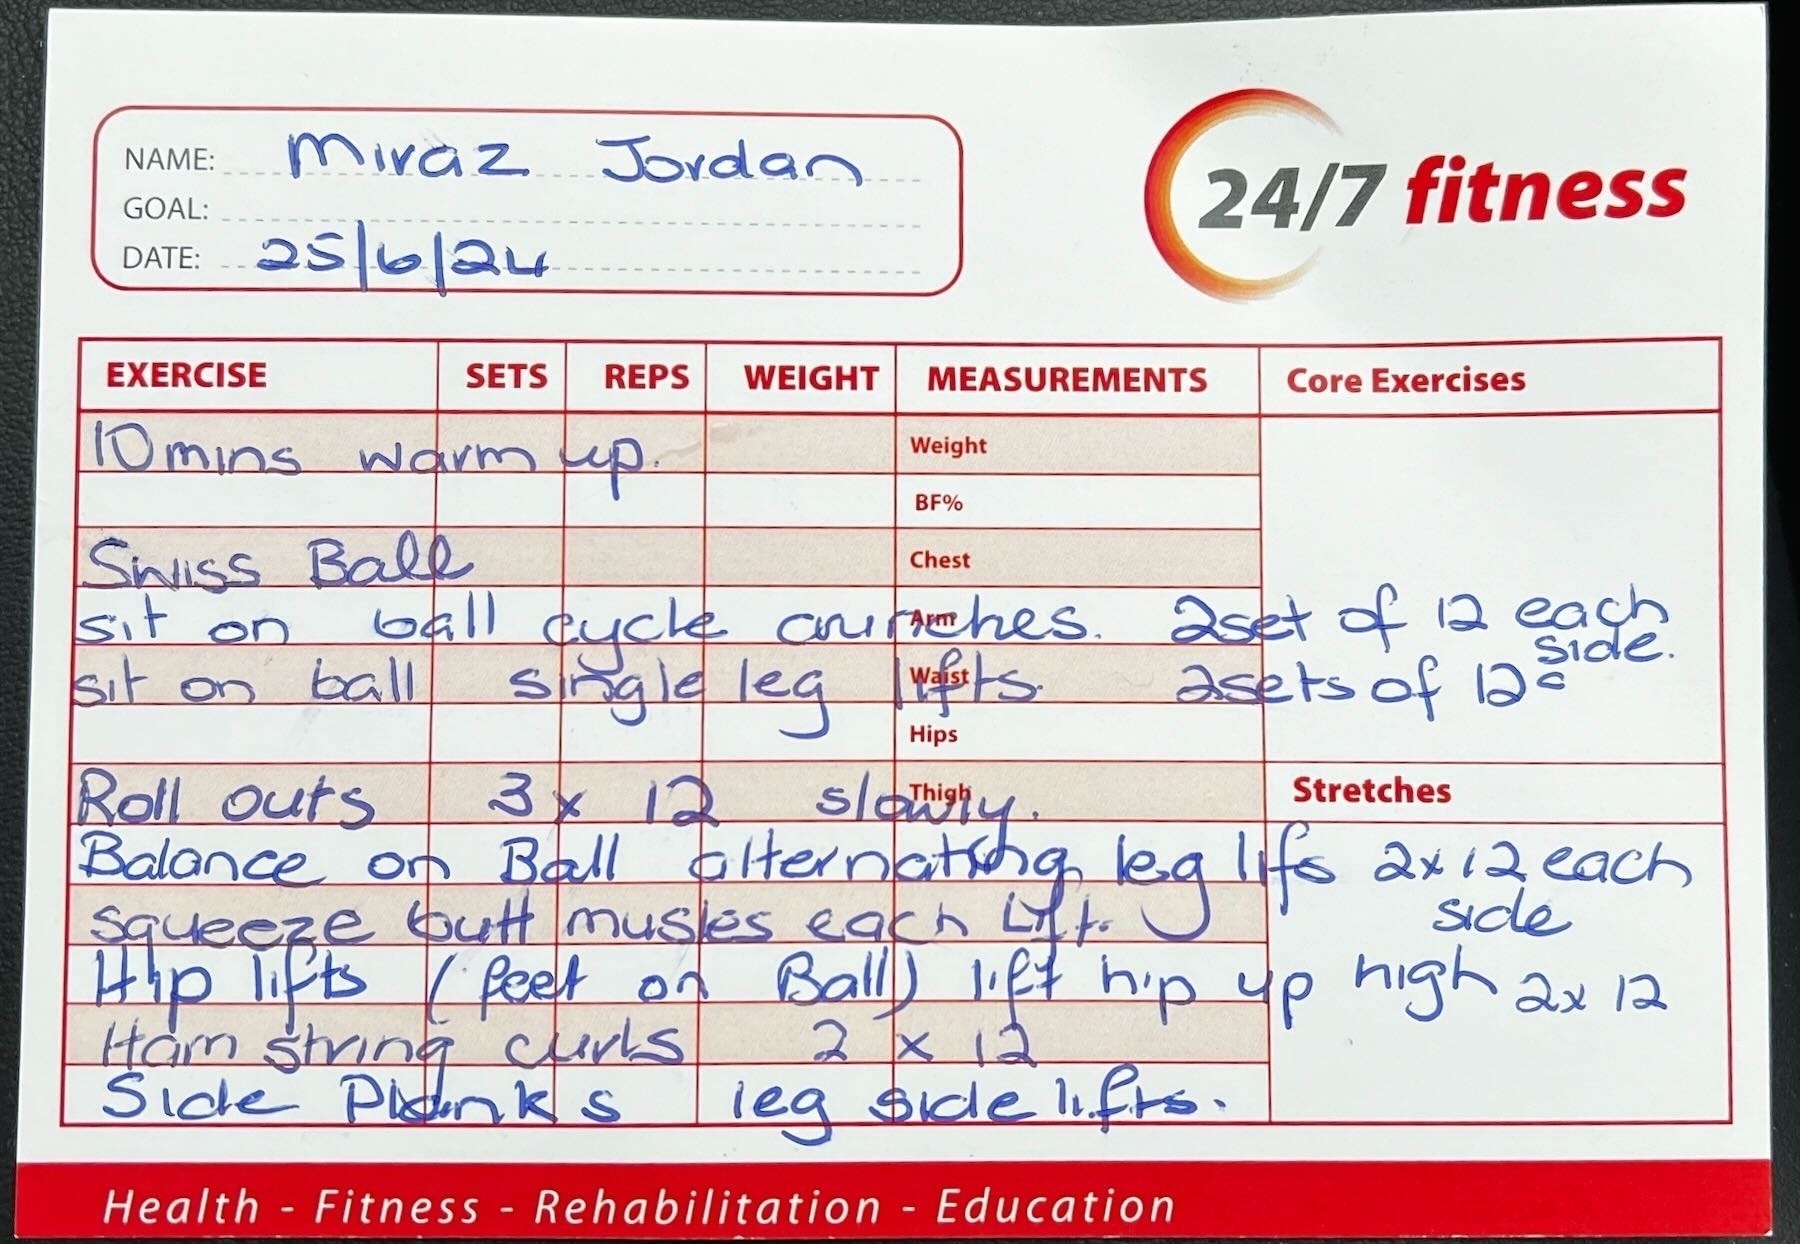 NAME: Miraz Jordan
GOAL:
DATE: 25/6/24
24/7 fitness
EXERCISE SETS REPS WEIGHT MEASUREMENTS Core Exercises
10 mins warm up. Weight
BF%
Swiss Ball Chest
sit on ball cycle crunches. Arm 2set of 12 each
side.
sit on ball single leg lifts. Waist 2sets of 12
Hips
Roll outs 3 x 12 slowly. Thigh Stretches
Balance on Ball alternating leg lifs 2x12 each
side
squeeze butt musles each Lift.
Hip lifts (feet on Ball) lift hip up high 2x 12
Ham string curls 2 x 12
Side Planks leg side lifts.
Health - Fitness - Rehabilitation - Education